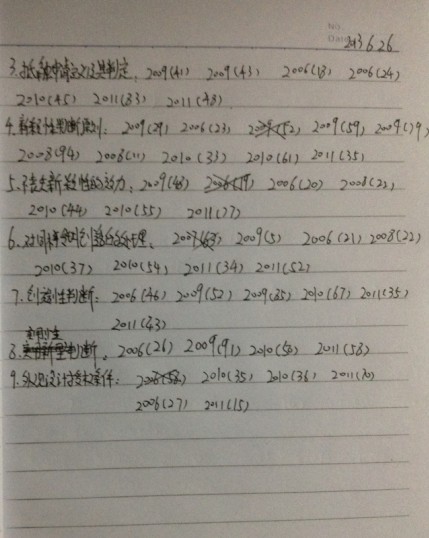 NO.
Date 2013 6 26
3. 抵触申请定义及其判定. 2009(41) 2009(43) 2006(18) 2006(24)
2010(45) 2011(33) 2011(48)
4. 新颖性判断原则: 2009(29) 2006(23) 2009(59) 2009(79)
2008(94) 2008(11) 2010(33) 2010(61) 2011(35)
5. 丧失新颖性的效力, 2009(48) 2006(20) 2008(22)
2010(44) 2010(55) 2011(77)
6. 对同样的发明创造的处理. 2009(5) 2006(21) 2008(22)
2010(37) 2010(54) 2011(34) 2011(52)
7. 创造性判断: 2006(46) 2009(52) 2009(85) 2010(67) 2011(35)
2011(43)
实用性
8. 判断. 2006(26) 2009(91) 2010(50) 2011(58)
9. 外观设计授权条件: 2010(35) 2010(36) 2011(70)
2006(27) 2011(15)